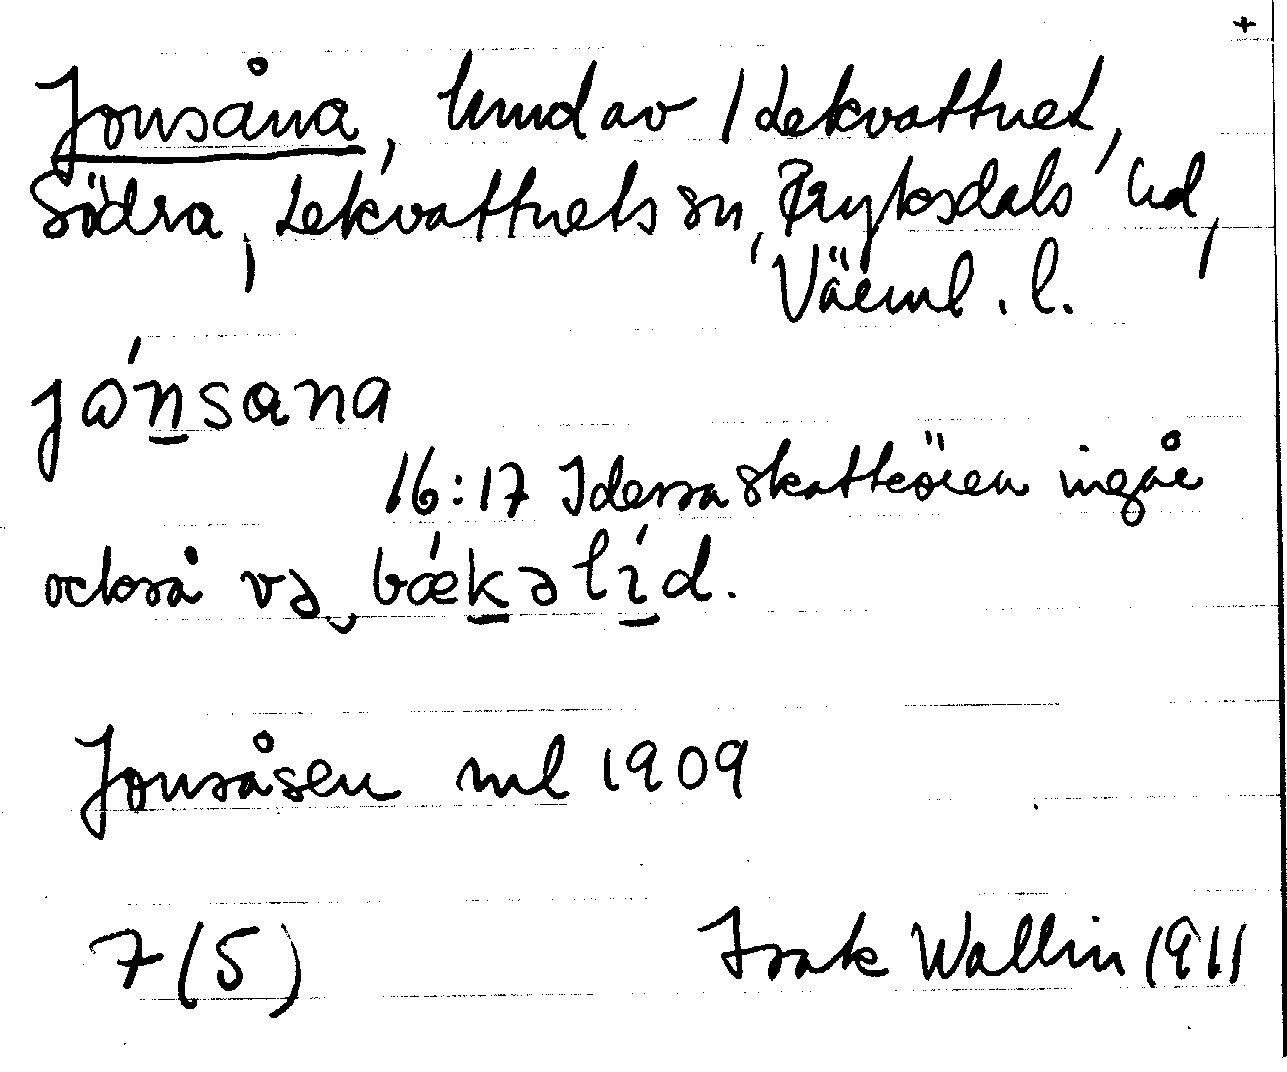 +
Jonsåna, hmd av 1 Lekvattnet,
Södra, Lekvattnets sn, Fryksdals hd,
Värml. l.
jónsana
16:17 I dessa skattören ingår
också və bǽkəlíd.
Jonsåsen ml 1909
7(5) Isak Wallin 1911